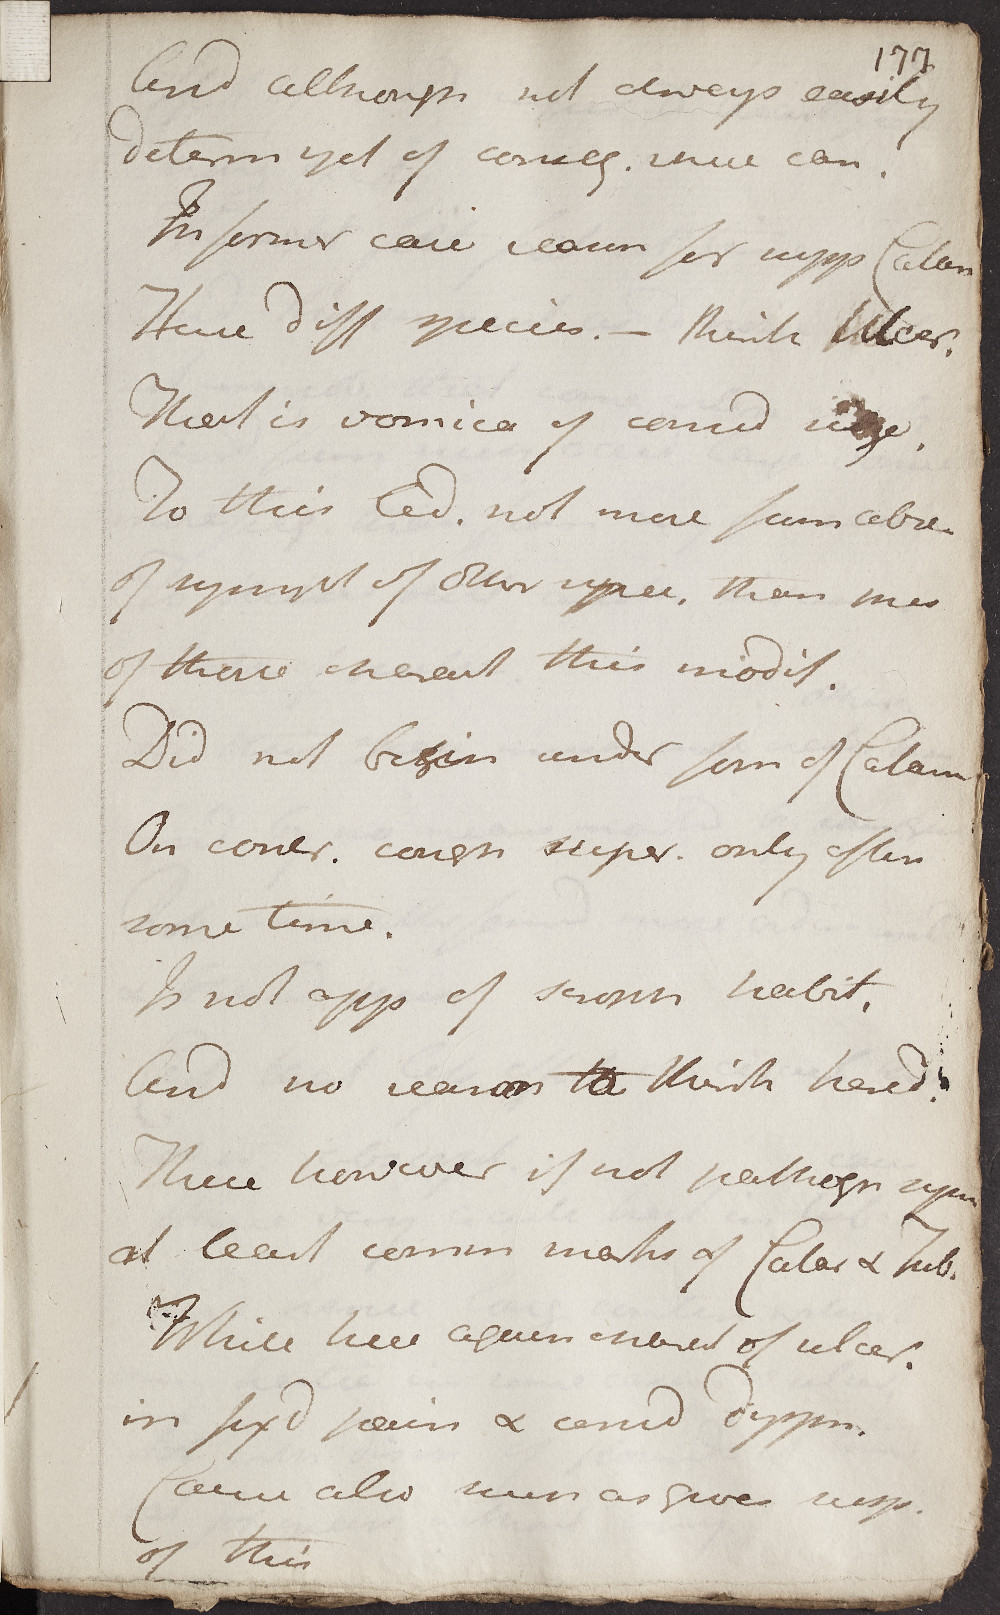 177
And although not always easily
determ yet of conseq. where can.
In former case reason for supp Catarr
Here diff species. — think Ulcer.
That is vomica of consid size.
To this led. not more from absen
of sympt of other spec. than pres
of these charact this modif.
Did not begin under form of Catarr
On contr. cough super. only after
some time.
Is not app of scroph habit.
And no reason to think hered.
There however if not pathogn sym
at least comm marks of Catar & Tub.
While here again charact of ulcer.
in fix'd pain & consid dyspn.
Cause also such as gives susp.
of this